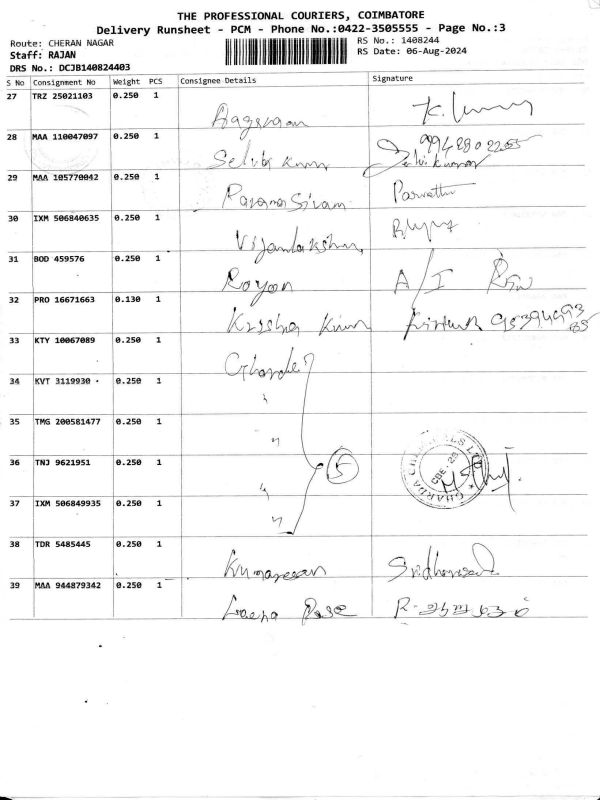 THE PROFESSIONAL COURIERS, COIMBATORE
Delivery Runsheet - PCM - Phone No.:0422-3505555 - Page No.:3
Route: CHERAN NAGAR RS No.: 1408244
Staff: RAJAN RS Date: 06-Aug-2024
DRS No.: DCJB140824403
S No Consignment No Weight PCS Consignee Details Signature
27 TRZ 25021103 0.250 1
28 MAA 110047097 0.250 1 9948802255
Selva Kumar
29 MAA 105770042 0.250 1 Parvathi
30 IXM 506840635 0.250 1
Vijayalakshmi
31 BOD 459576 0.250 1
Royon A/I
32 PRO 16671663 0.130 1
Krishna Kumar
33 KTY 10067089 0.250 1
Gharda
34 KVT 3119930 0.250 1
〃
35 TMG 200581477 0.250 1
〃
36 TNJ 9621951 0.250 1 5
〃
37 IXM 506849935 0.250 1
〃
38 TDR 5485445 0.250 1
Kumaresan
39 MAA 944879342 0.250 1